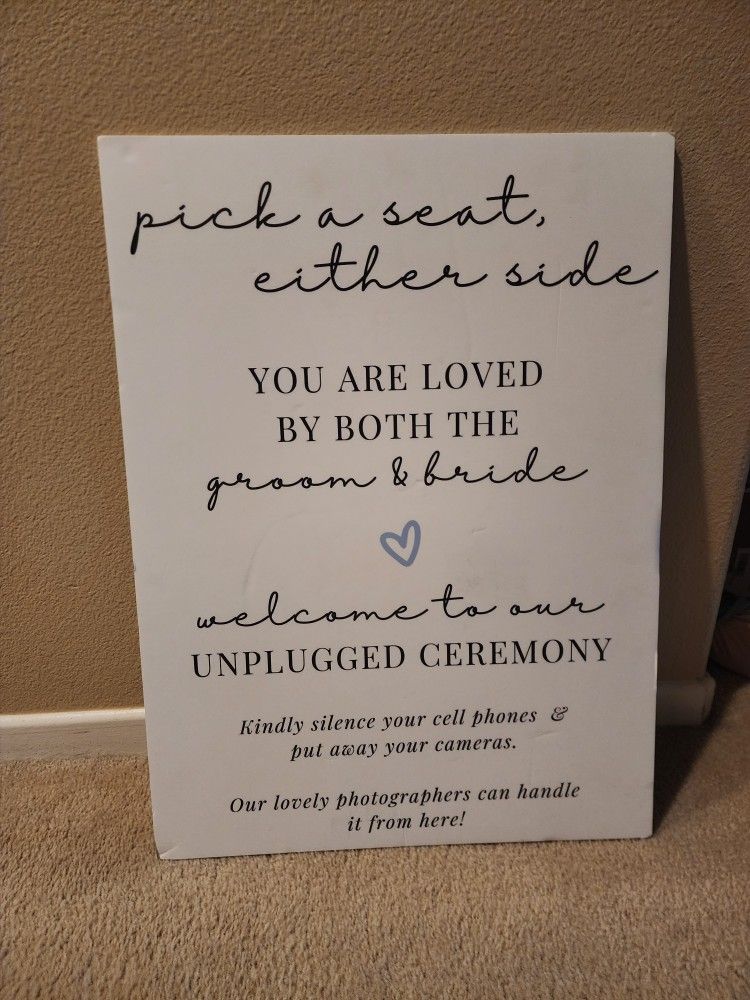 pick a seat,
either side
YOU ARE LOVED
BY BOTH THE
groom & bride
welcome to our
UNPLUGGED CEREMONY
Kindly silence your cell phones &
put away your cameras.
Our lovely photographers can handle
it from here!